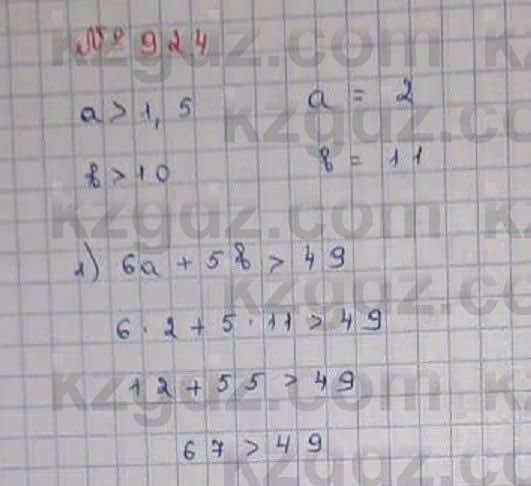 № 924
a > 1,5 a = 2
b > 10 b = 11
1) 6a + 5b > 49
6 · 2 + 5 · 11 > 49
12 + 55 > 49
67 > 49
kzgdz.com